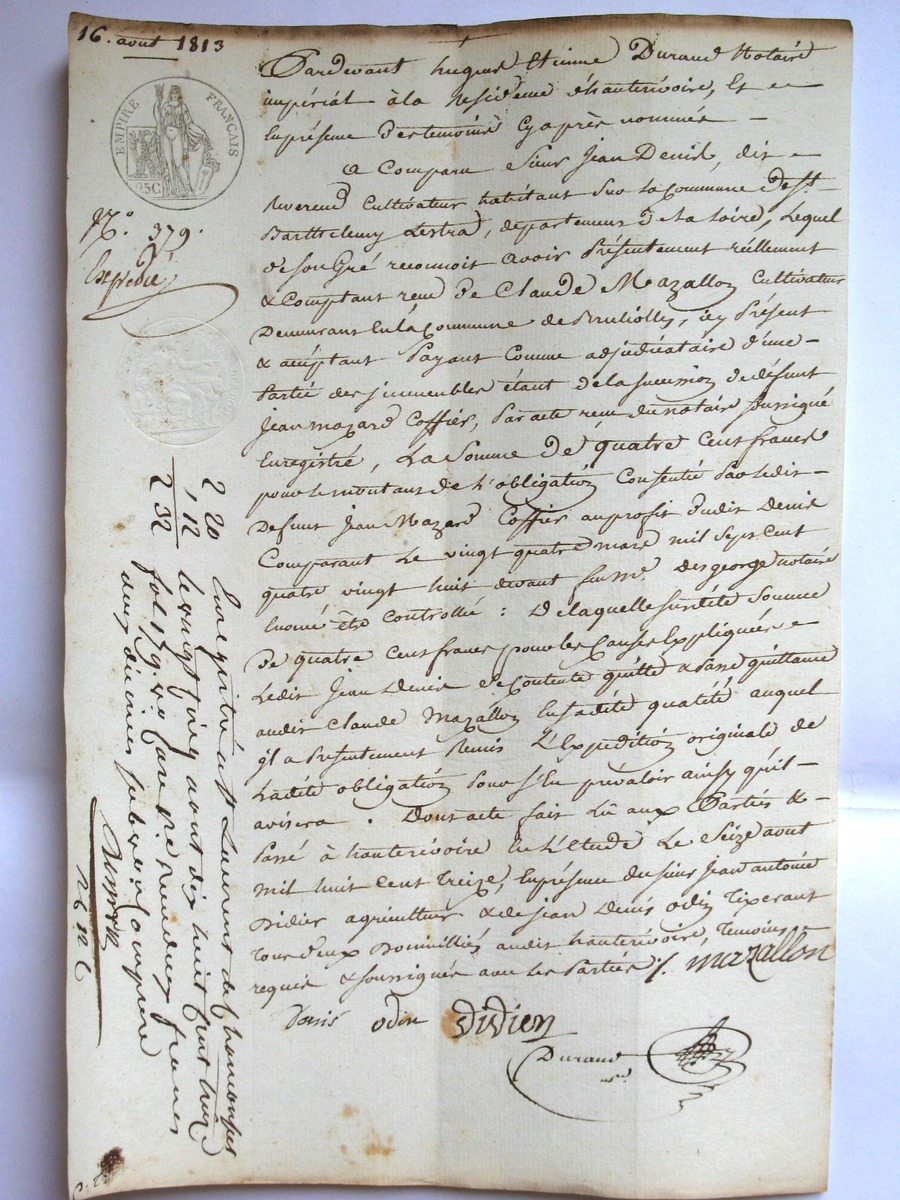 16. aout 1813
EMPIRE FRANÇAIS
25C
N.º 379.
Expedié
Pardevant hugues Etienne Durand Notaire
impérial à la Residence d'hauterivoire, Et en
La présence des temoins Cy après nommés —
A Comparu Sieur Jean Denis, dit
Reverend Cultivateur habitant Sur la Commune de St.
Barthelemy Lestra, département de la Loire, Lequel
de Son Gré reconnoit avoir Présentement réellement
& Comptant reçu de Claude Mazallon Cultivateur
Demeurant En la Commune de Brullioles, icy Présent
& acceptant Payant Comme adjudicataire d'une
Partie des jmmeubles étant de la succession de défunt
Jean Mazard Coffier, Par acte reçu du notaire soussigné
Enregistré, La Somme De quatre Cent francs
pour le montant de L'obligation Consentie Par ledit
Defunt Jean Mazard Coffier au profit dudit Denis
Comparant Le vingt quatre mars mil Sept Cent
quatre vingt huit devant feu Me. Desgeorge notaire
controllé : De laquelle susdite Somme
De quatre Cent francs pour les Causes Expliquées
Ledit Jean Denis Se Contente quitte & Passe quittance
audit Claude Mazallon En sadite qualité auquel
il a Présentement Remis L'Expedition originale de
Ladite obligation Pour s'En prévaloir ainsy qu'il
avisera. Dont acte fait Lû aux Parties &
Passé à hauterivoire En L'étude Le Seize aout
mil huit Cent treize, En présence du sieur Jean antoine
Didier agriculteur & de Jean Denis odin Tixerant
Tous deux Domiciliés audit hauterivoire, Temoins
requis & soussignés avec les Parties /. Mazallon
Denis odin Didier
Durand
nre.
2 20
, 12
2 32
Enregistré a St Laurent de Chamousset
le vingt cinq aout dix huit cent treize
fol 179. Ro. Case pr rendu francs
deux decimes